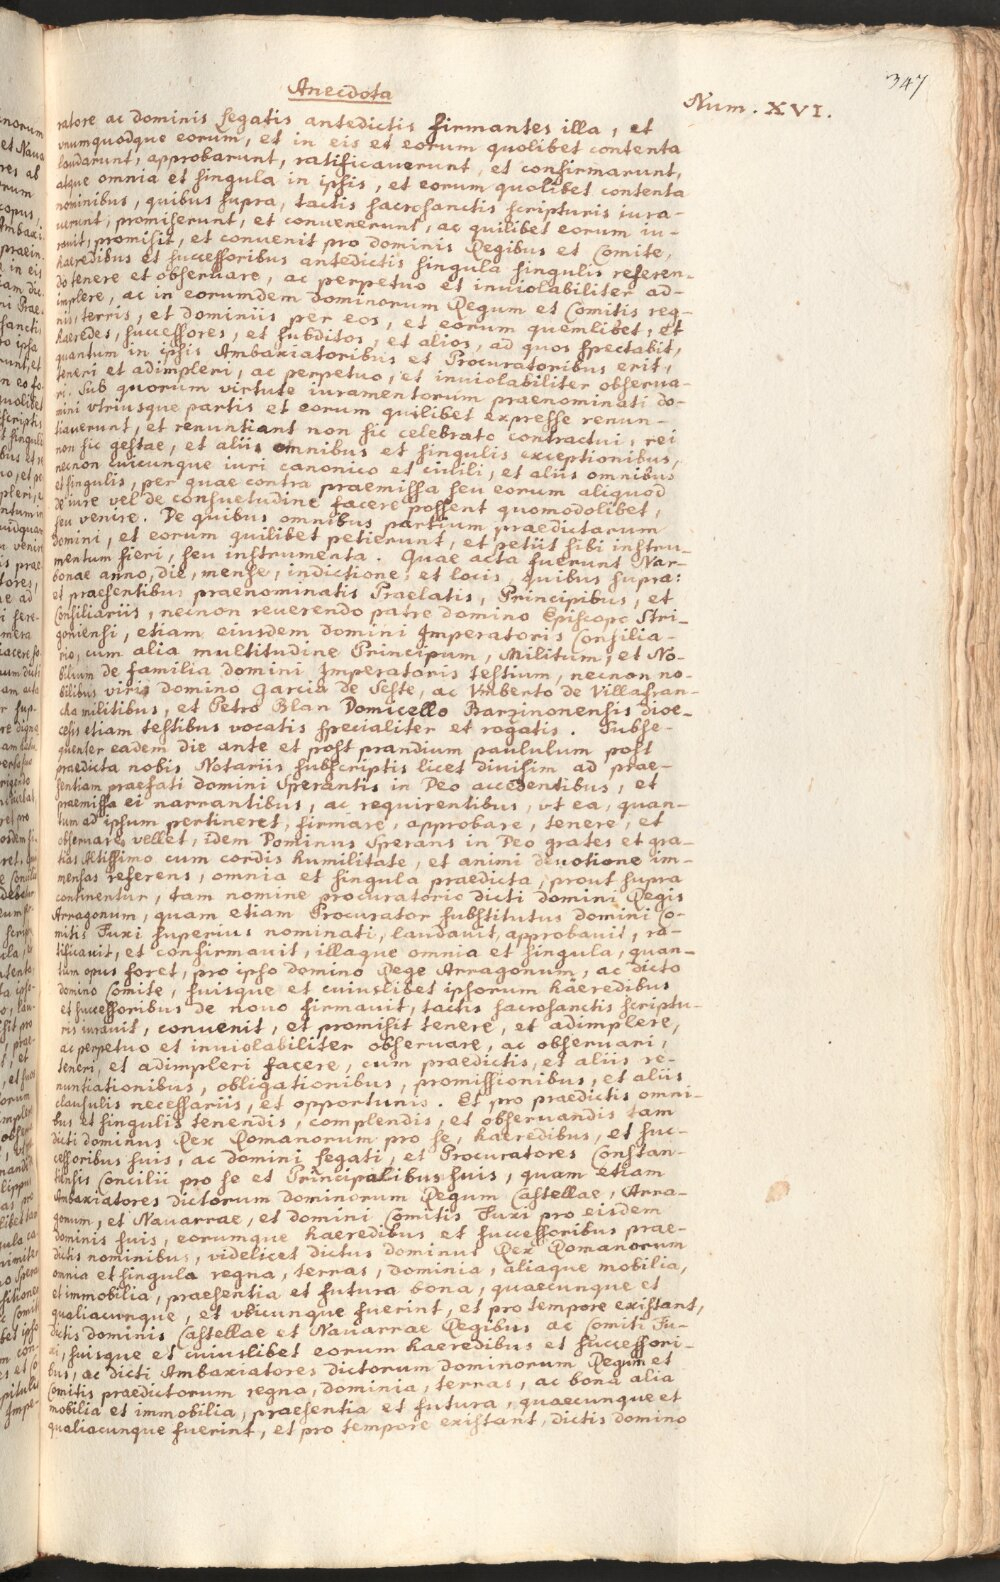 347
Anecdota
Num. XVI.
ratore ac dominis Legatis antedictis firmantes illa, et
vnumquodque eorum, et in eis et eorum quolibet contenta
laudarunt, approbarunt, ratificauerunt, et confirmarunt,
atque omnia et singula in ipsis, et eorum quolibet contenta
nominibus, quibus supra, tactis sacrosanctis scripturis iura-
uerunt, promiserunt, et convenerunt, ac quilibet eorum iu-
rauit, promisit, et convenit pro dominis Regibus et Comite,
haeredibus et successoribus antedictis singula singulis referen-
do tenere et obseruare, ac perpetuo et inuiolabiliter ad-
implere, ac in eorumdem dominorum Regum et Comitis reg-
nis, terris, et dominiis per eos, et eorum quemlibet, et
haeredes, successores, et subditos, et alios, ad quos spectabit,
quantum in ipsis Ambaxiatoribus et Procuratoribus erit,
teneri et adimpleri, ac perpetuo, et inuiolabiliter obserua-
ri. Sub quorum virtute iuramentorum praenominati do-
mini vtriusque partis et eorum quilibet expresse renun-
tiauerunt, et renuntiant non sic celebrato contractui, rei
non sic gestae, et aliis omnibus et singulis exceptionibus,
necnon cuicunque iuri canonico et ciuili, et aliis omnibus
et singulis, per quae contra praemissa seu eorum aliquod
de iure vel de consuetudine facere possent quomodolibet,
seu venire. De quibus omnibus partium praedictarum
domini, et eorum quilibet petierunt, et petiit sibi instru-
mentum fieri, seu instrumenta. Quae acta fuerunt Nar-
bonae anno, die, mense, indictione, et locis, quibus supra:
et praesentibus praenominatis Praelatis, Principibus, et
Consiliariis, necnon reuerendo patre domino Episcopo Stri-
goniensi, etiam eiusdem domini Imperatoris Consilia-
rio, cum alia multitudine Principum, Militum, et No-
bilium de familia domini Imperatoris testium, necnon no-
bilibus viris domino Garcia de Seste, ac Vmberto de Villafran-
cha militibus, et Petro Blan Domicello Barzinonensis dioe-
cesis etiam testibus vocatis specialiter et rogatis. Subse-
quenter eadem die ante et post prandium paululum post
praedicta nobis Notariis subscriptis licet divisim ad prae-
sentiam praefati domini Sperantis in Deo accedentibus, et
praemissa ei narrantibus, ac requirentibus, vt ea, quan-
tum ad ipsum pertineret, firmare, approbare, tenere, et
obseruare vellet, idem Dominus Sperans in Deo grates et gra-
tias Altissimo cum cordis humilitate, et animi deuotione im-
mensas referens, omnia et singula praedicta, prout supra
continentur, tam nomine procuratorio dicti domini Regis
Arragonum, quam etiam Procurator substitutus domini Co-
mitis Fuxi superius nominati, laudauit, approbauit, ra-
tificauit, et confirmauit, illaque omnia et singula, quan-
tum opus foret, pro ipso domino Rege Arragonum, ac dicto
domino Comite, suisque et cuiuslibet ipsorum haeredibus
et successoribus de nouo firmauit, tactis sacrosanctis scriptu-
ris iurauit, convenit, et promisit tenere, et adimplere,
ac perpetuo et inviolabiliter obseruare, ac obseruari,
teneri, et adimpleri facere, cum praedictis, et aliis re-
nuntiationibus, obligationibus, promissionibus, et aliis
clausulis necessariis, et opportunis. Et pro praedictis omni-
bus et singulis tenendis, complendis, et obseruandis tam
dicti dominus Rex Romanorum pro se, haeredibus, et suc-
cessoribus suis, ac domini Legati, et Procuratores Constan-
tiensis Concilii pro se et Principalibus suis, quam etiam
Ambaxiatores dictorum dominorum Regum Castellae, Arra-
gonum, et Nauarrae, et domini Comitis Fuxi pro eisdem
dominis suis, eorumque haeredibus et successoribus prae-
dictis nominibus, videlicet dictus dominus Rex Romanorum
omnia et singula regna, terras, dominia, aliaque mobilia,
et immobilia, praesentia et futura bona, quaecunque et
qualiacunque, et vbicunque fuerint, et pro tempore existant,
dictis dominis Castellae et Nauarrae Regibus ac Comiti Fu-
xi, suisque et cuiuslibet eorum haeredibus et successori-
bus, ac dicti Ambaxiatores dictorum dominorum Regum et
Comitis praedictorum regna, dominia, terras, ac bona alia
mobilia et immobilia, praesentia et futura, quaecunque et
qualiacunque fuerint, et pro tempore existant, dictis domino